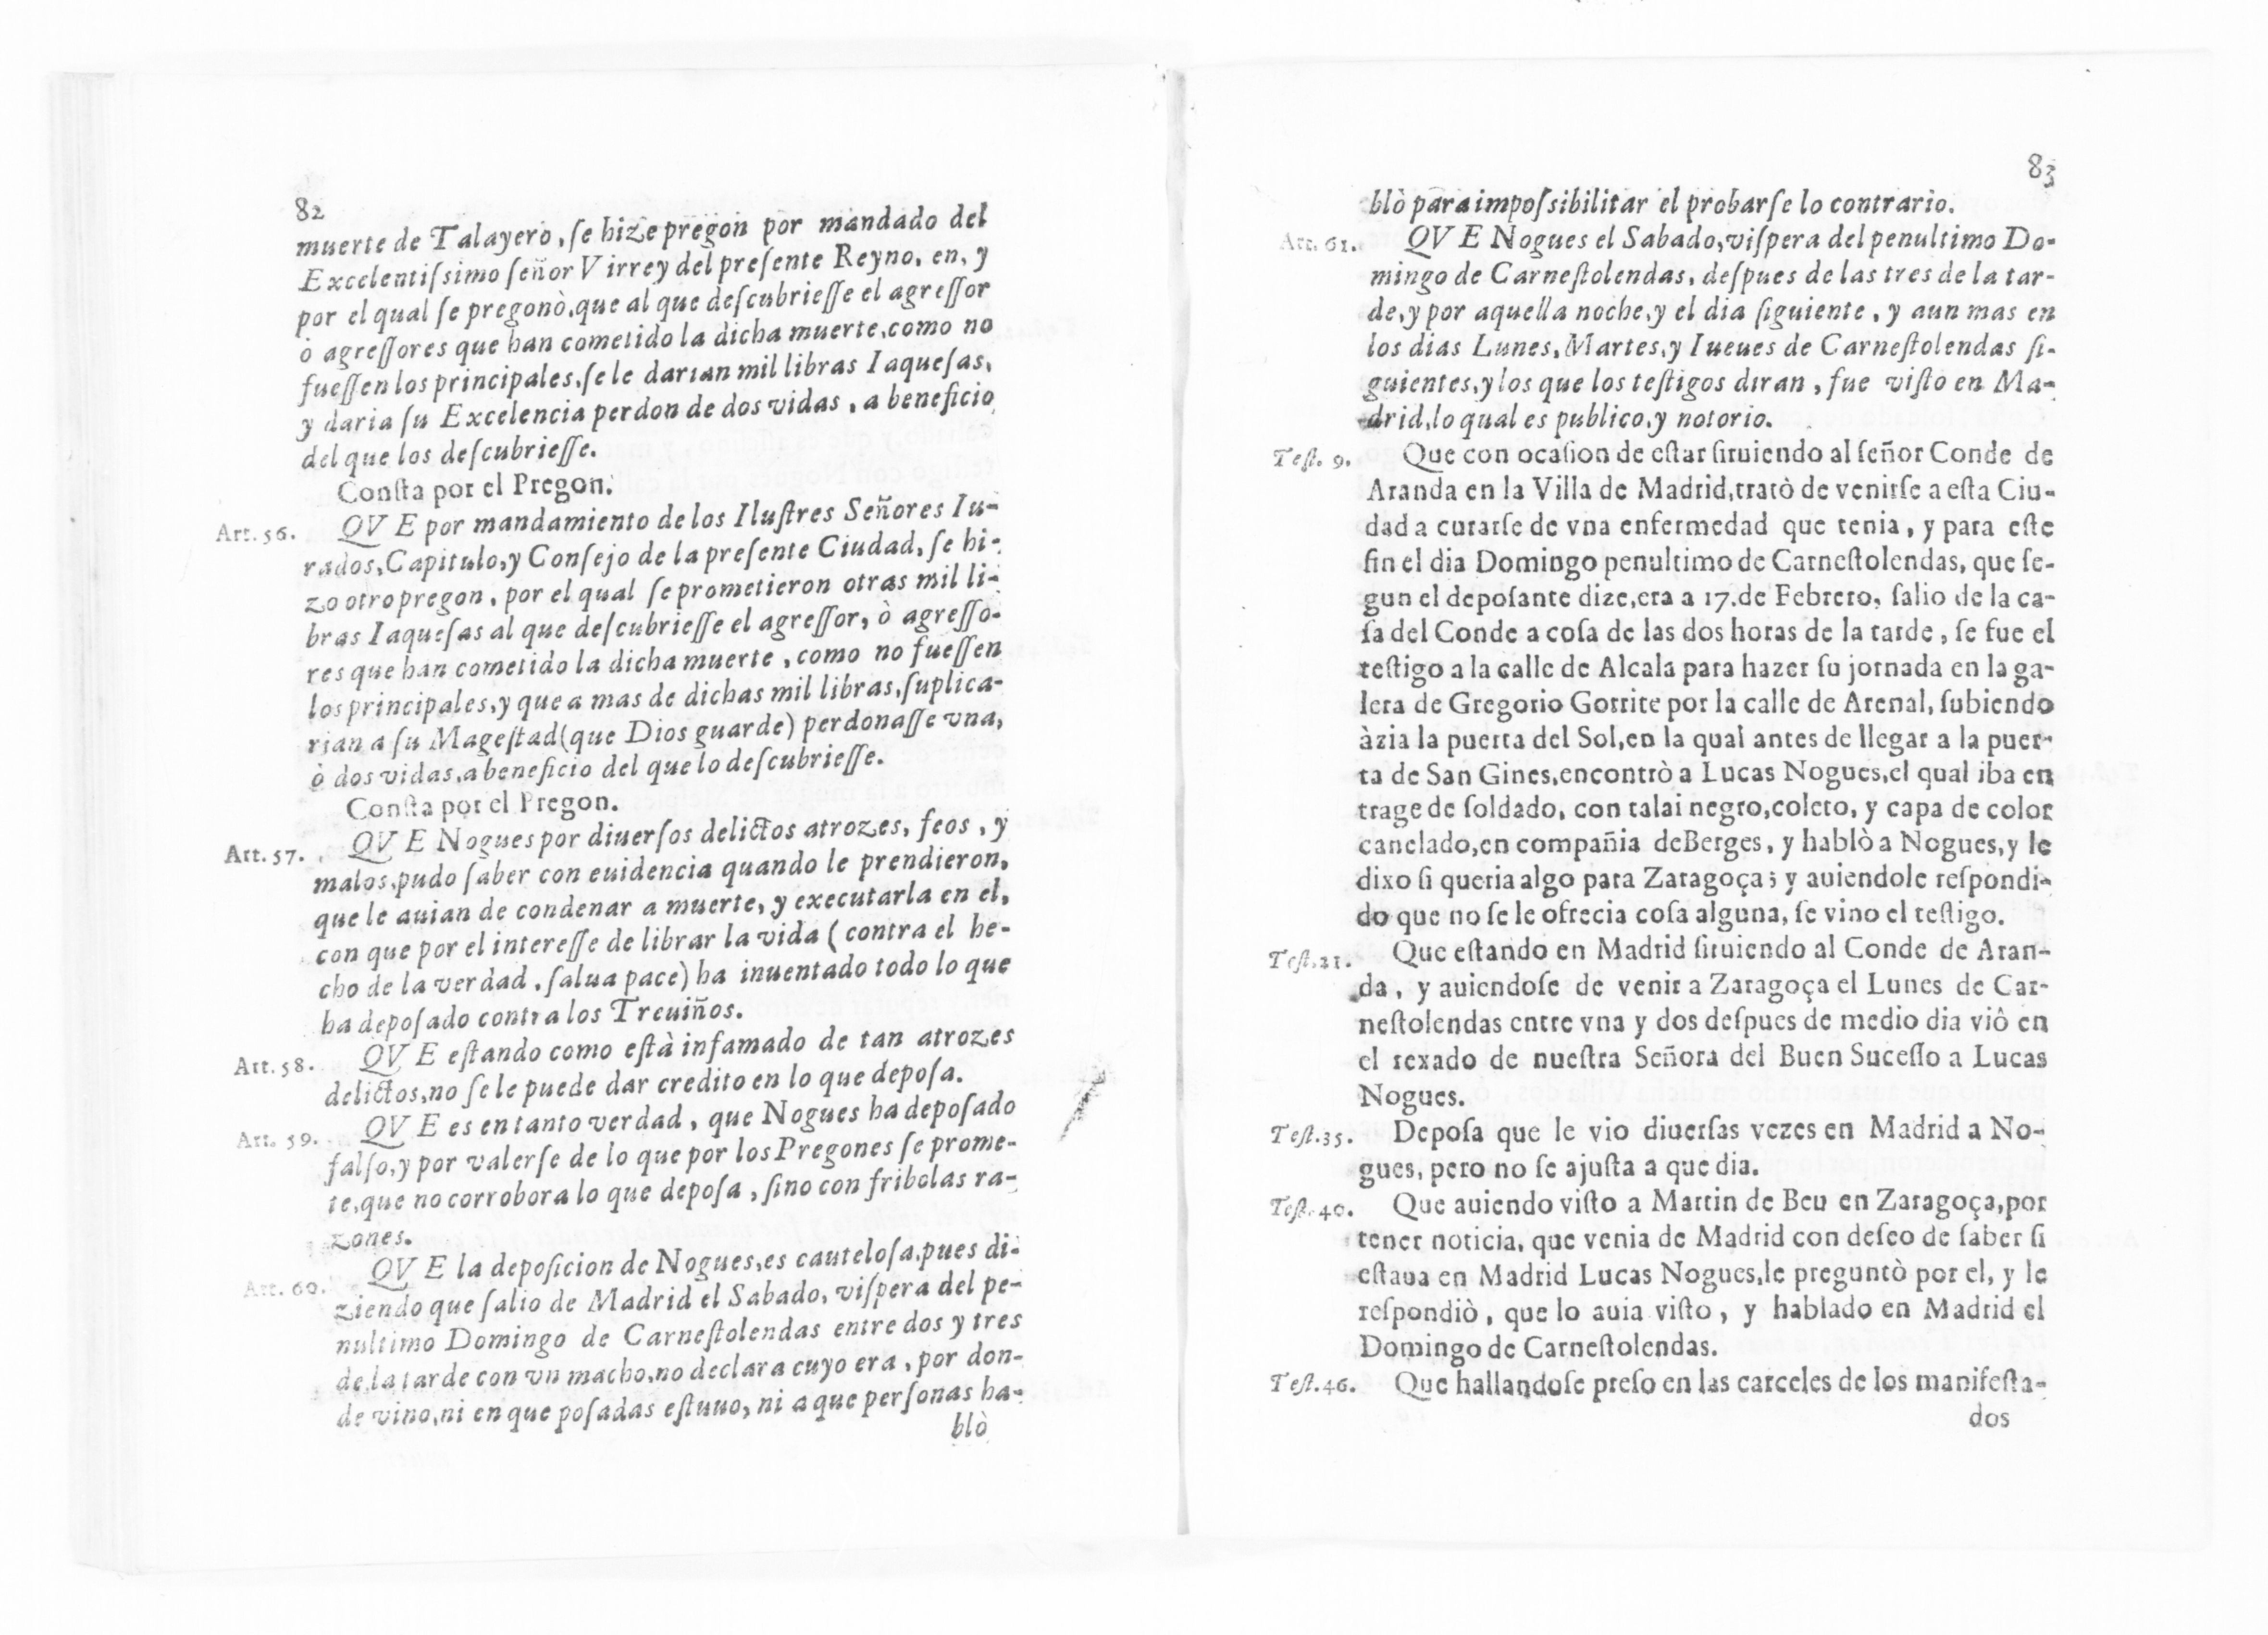 82
muerte de Talayero, ſe hize pregon por mandado del
Excelentiſsimo ſeñor Virrey del preſente Reyno, en, y
por el qual ſe pregonò, que al que deſcubrieſſe el agreſſor
ò agreſſores que han cometido la dicha muerte, como no
fueſſen los principales, ſe le darian mil libras Iaqueſas,
y daria ſu Excelencia perdon de dos vidas, a beneficio
del que los deſcubrieſſe.
Conſta por el Pregon.
Art. 56. QVE por mandamiento de los Iluſtres Señores Iu-
rados, Capitulo, y Conſejo de la preſente Ciudad, ſe hi-
zo otro pregon, por el qual ſe prometieron otras mil li-
bras Iaqueſas al que deſcubrieſſe el agreſſor, ò agreſſo-
res que han cometido la dicha muerte, como no fueſſen
los principales, y que a mas de dichas mil libras, ſuplica-
rian a ſu Mageſtad (que Dios guarde) perdonaſſe vna,
ò dos vidas, a beneficio del que lo deſcubrieſſe.
Conſta por el Pregon.
Art. 57. QVE Nogues por diuerſos delictos atrozes, feos, y
malos, pudo ſaber con euidencia quando le prendieron,
que le auian de condenar a muerte, y executarla en el,
con que por el intereſſe de librar la vida (contra el he-
cho de la verdad, ſalua pace) ha inuentado todo lo que
ha depoſado contra los Treuiños.
Art. 58. QVE eſtando como eſtà infamado de tan atrozes
delictos, no ſe le puede dar credito en lo que depoſa.
Art. 59. QVE es en tanto verdad, que Nogues ha depoſado
falſo, y por valerſe de lo que por los Pregones ſe prome-
te, que no corrobora lo que depoſa, ſino con fribolas ra-
zones.
Art. 60. QVE la depoſicion de Nogues, es cauteloſa, pues di-
ziendo que ſalio de Madrid el Sabado, viſpera del pe-
nultimo Domingo de Carneſtolendas entre dos y tres
de la tarde con vn macho, no declara cuyo era, por don-
de vino, ni en que poſadas eſtuuo, ni a que perſonas ha-
blò
83
blò para impoſsibilitar el probarſe lo contrario.
Art. 61. QVE Nogues el Sabado, viſpera del penultimo Do-
mingo de Carneſtolendas, deſpues de las tres de la tar-
de, y por aquella noche, y el dia ſiguiente, y aun mas en
los dias Lunes, Martes, y Iueues de Carneſtolendas ſi-
guientes, y los que los teſtigos diran, fue viſto en Ma-
drid, lo qual es publico, y notorio.
Teſt. 9. Que con ocaſion de eſtar ſiruiendo al ſeñor Conde de
Aranda en la Villa de Madrid, tratò de venirſe a eſta Ciu-
dad a curarſe de vna enfermedad que tenia, y para eſte
fin el dia Domingo penultimo de Carneſtolendas, que ſe-
gun el depoſante dize, era a 17. de Febrero, ſalio de la ca-
ſa del Conde a coſa de las dos horas de la tarde, ſe fue el
teſtigo a la calle de Alcala para hazer ſu jornada en la ga-
lera de Gregorio Gorrite por la calle de Arenal, ſubiendo
àzia la puerta del Sol, en la qual antes de llegar a la puer-
ta de San Gines, encontrò a Lucas Nogues, el qual iba en
trage de ſoldado, con talai negro, coleto, y capa de color
canelado, en compañia de Berges, y hablò a Nogues, y le
dixo ſi queria algo para Zaragoça; y auiendole reſpondi-
do que no ſe le ofrecia coſa alguna, ſe vino el teſtigo.
Teſt. 21. Que eſtando en Madrid ſiruiendo al Conde de Aran-
da, y auiendoſe de venir a Zaragoça el Lunes de Car-
neſtolendas entre vna y dos deſpues de medio dia viò en
el rexado de nueſtra Señora del Buen Suceſſo a Lucas
Nogues.
Teſt. 35. Depoſa que le vio diuerſas vezes en Madrid a No-
gues, pero no ſe ajuſta a que dia.
Teſt. 40. Que auiendo viſto a Martin de Beu en Zaragoça, por
tener noticia, que venia de Madrid con deſeo de ſaber ſi
eſtaua en Madrid Lucas Nogues, le preguntò por el, y le
reſpondiò, que lo auia viſto, y hablado en Madrid el
Domingo de Carneſtolendas.
Teſt. 46. Que hallandoſe preſo en las carceles de los manifeſta-
dos